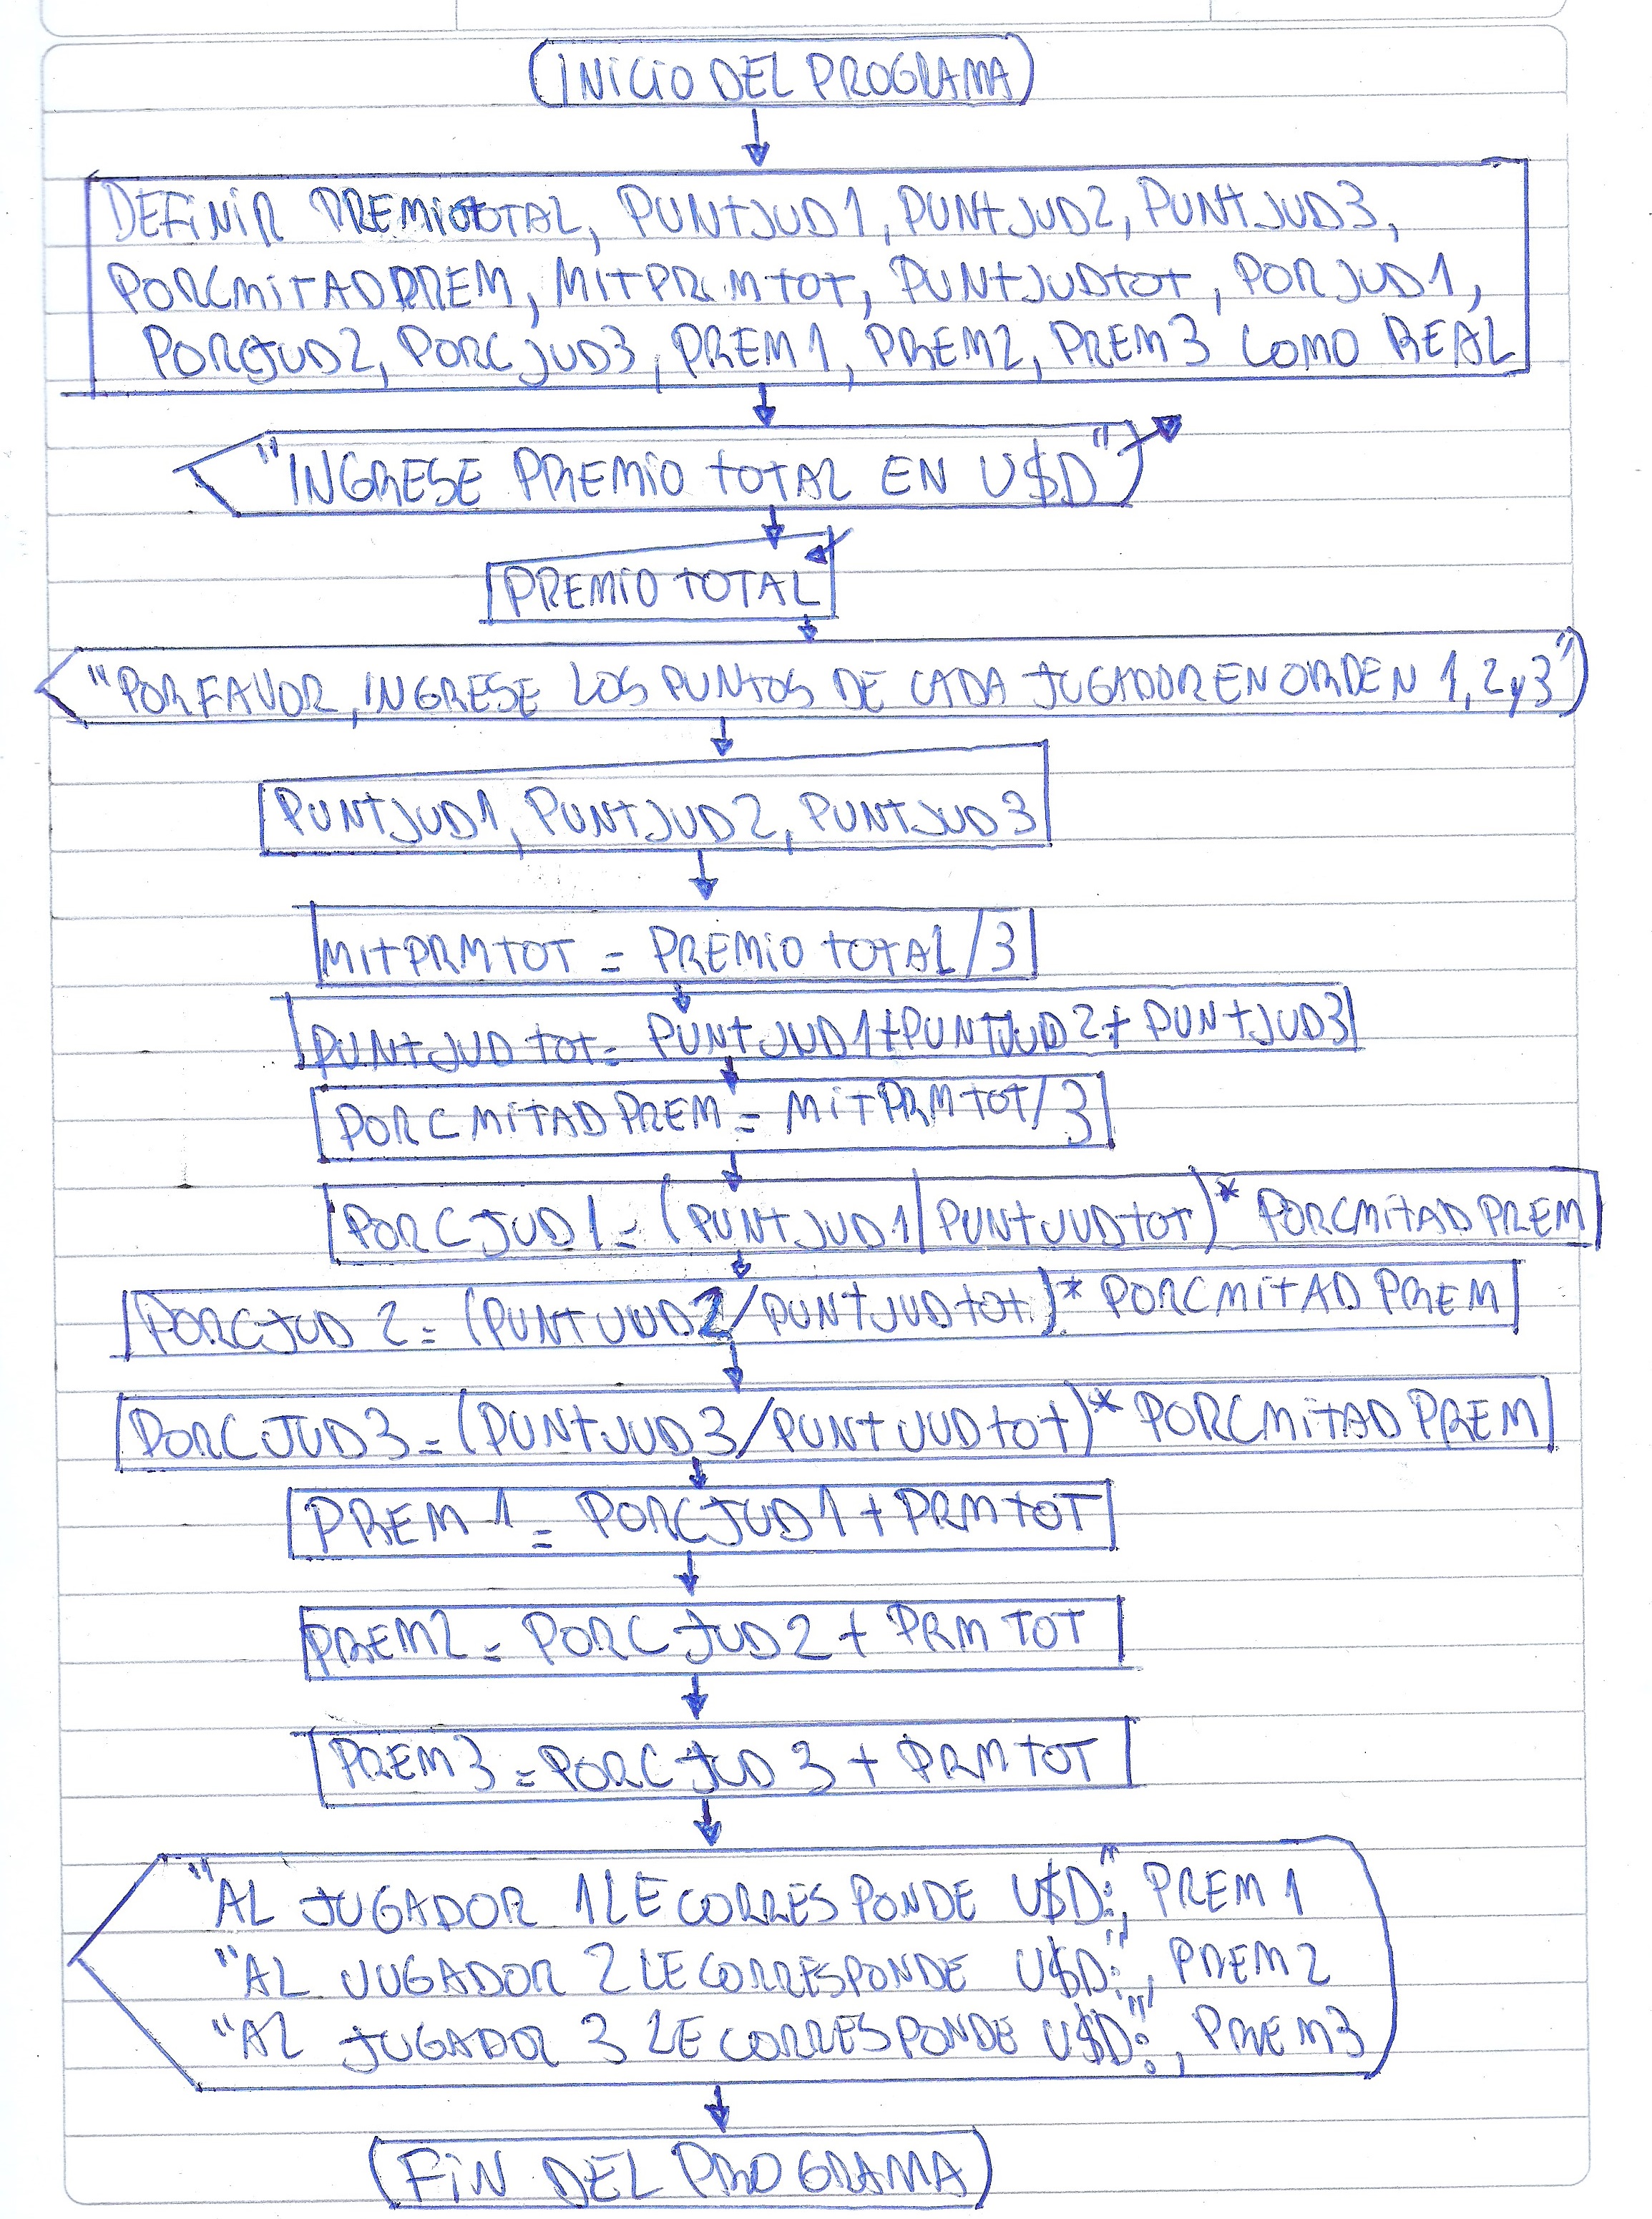 INICIO DEL PROGRAMA
DEFINIR PREMIOTOTAL, PUNTJUD1, PUNTJUD2, PUNTJUD3,
PORCMITADPREM, MITPRMTOT, PUNTJUDTOT, PORJUD1,
PORCJUD2, PORCJUD3, PREM1, PREM2, PREM3 COMO REAL
"INGRESE PREMIO TOTAL EN U$D"
PREMIO TOTAL
"POR FAVOR, INGRESE LOS PUNTOS DE CADA JUGADOR EN ORDEN 1, 2 y 3"
PUNTJUD1, PUNTJUD2, PUNTJUD3
MITPRMTOT = PREMIO TOTAL/3
PUNTJUDTOT = PUNTJUD1+PUNTJUD2+PUNTJUD3
PORCMITADPREM = MITPRMTOT/3
PORCJUD1 = (PUNTJUD1/PUNTJUDTOT)*PORCMITADPREM
PORCJUD2 = (PUNTJUD2/PUNTJUDTOT)*PORCMITADPREM
PORCJUD3 = (PUNTJUD3/PUNTJUDTOT)*PORCMITADPREM
PREM1 = PORCJUD1 + PRMTOT
PREM2 = PORCJUD2 + PRMTOT
PREM3 = PORCJUD3 + PRMTOT
"AL JUGADOR 1 LE CORRESPONDE U$D:", PREM1
"AL JUGADOR 2 LE CORRESPONDE U$D:", PREM2
"AL JUGADOR 3 LE CORRESPONDE U$D:", PREM3
FIN DEL PROGRAMA